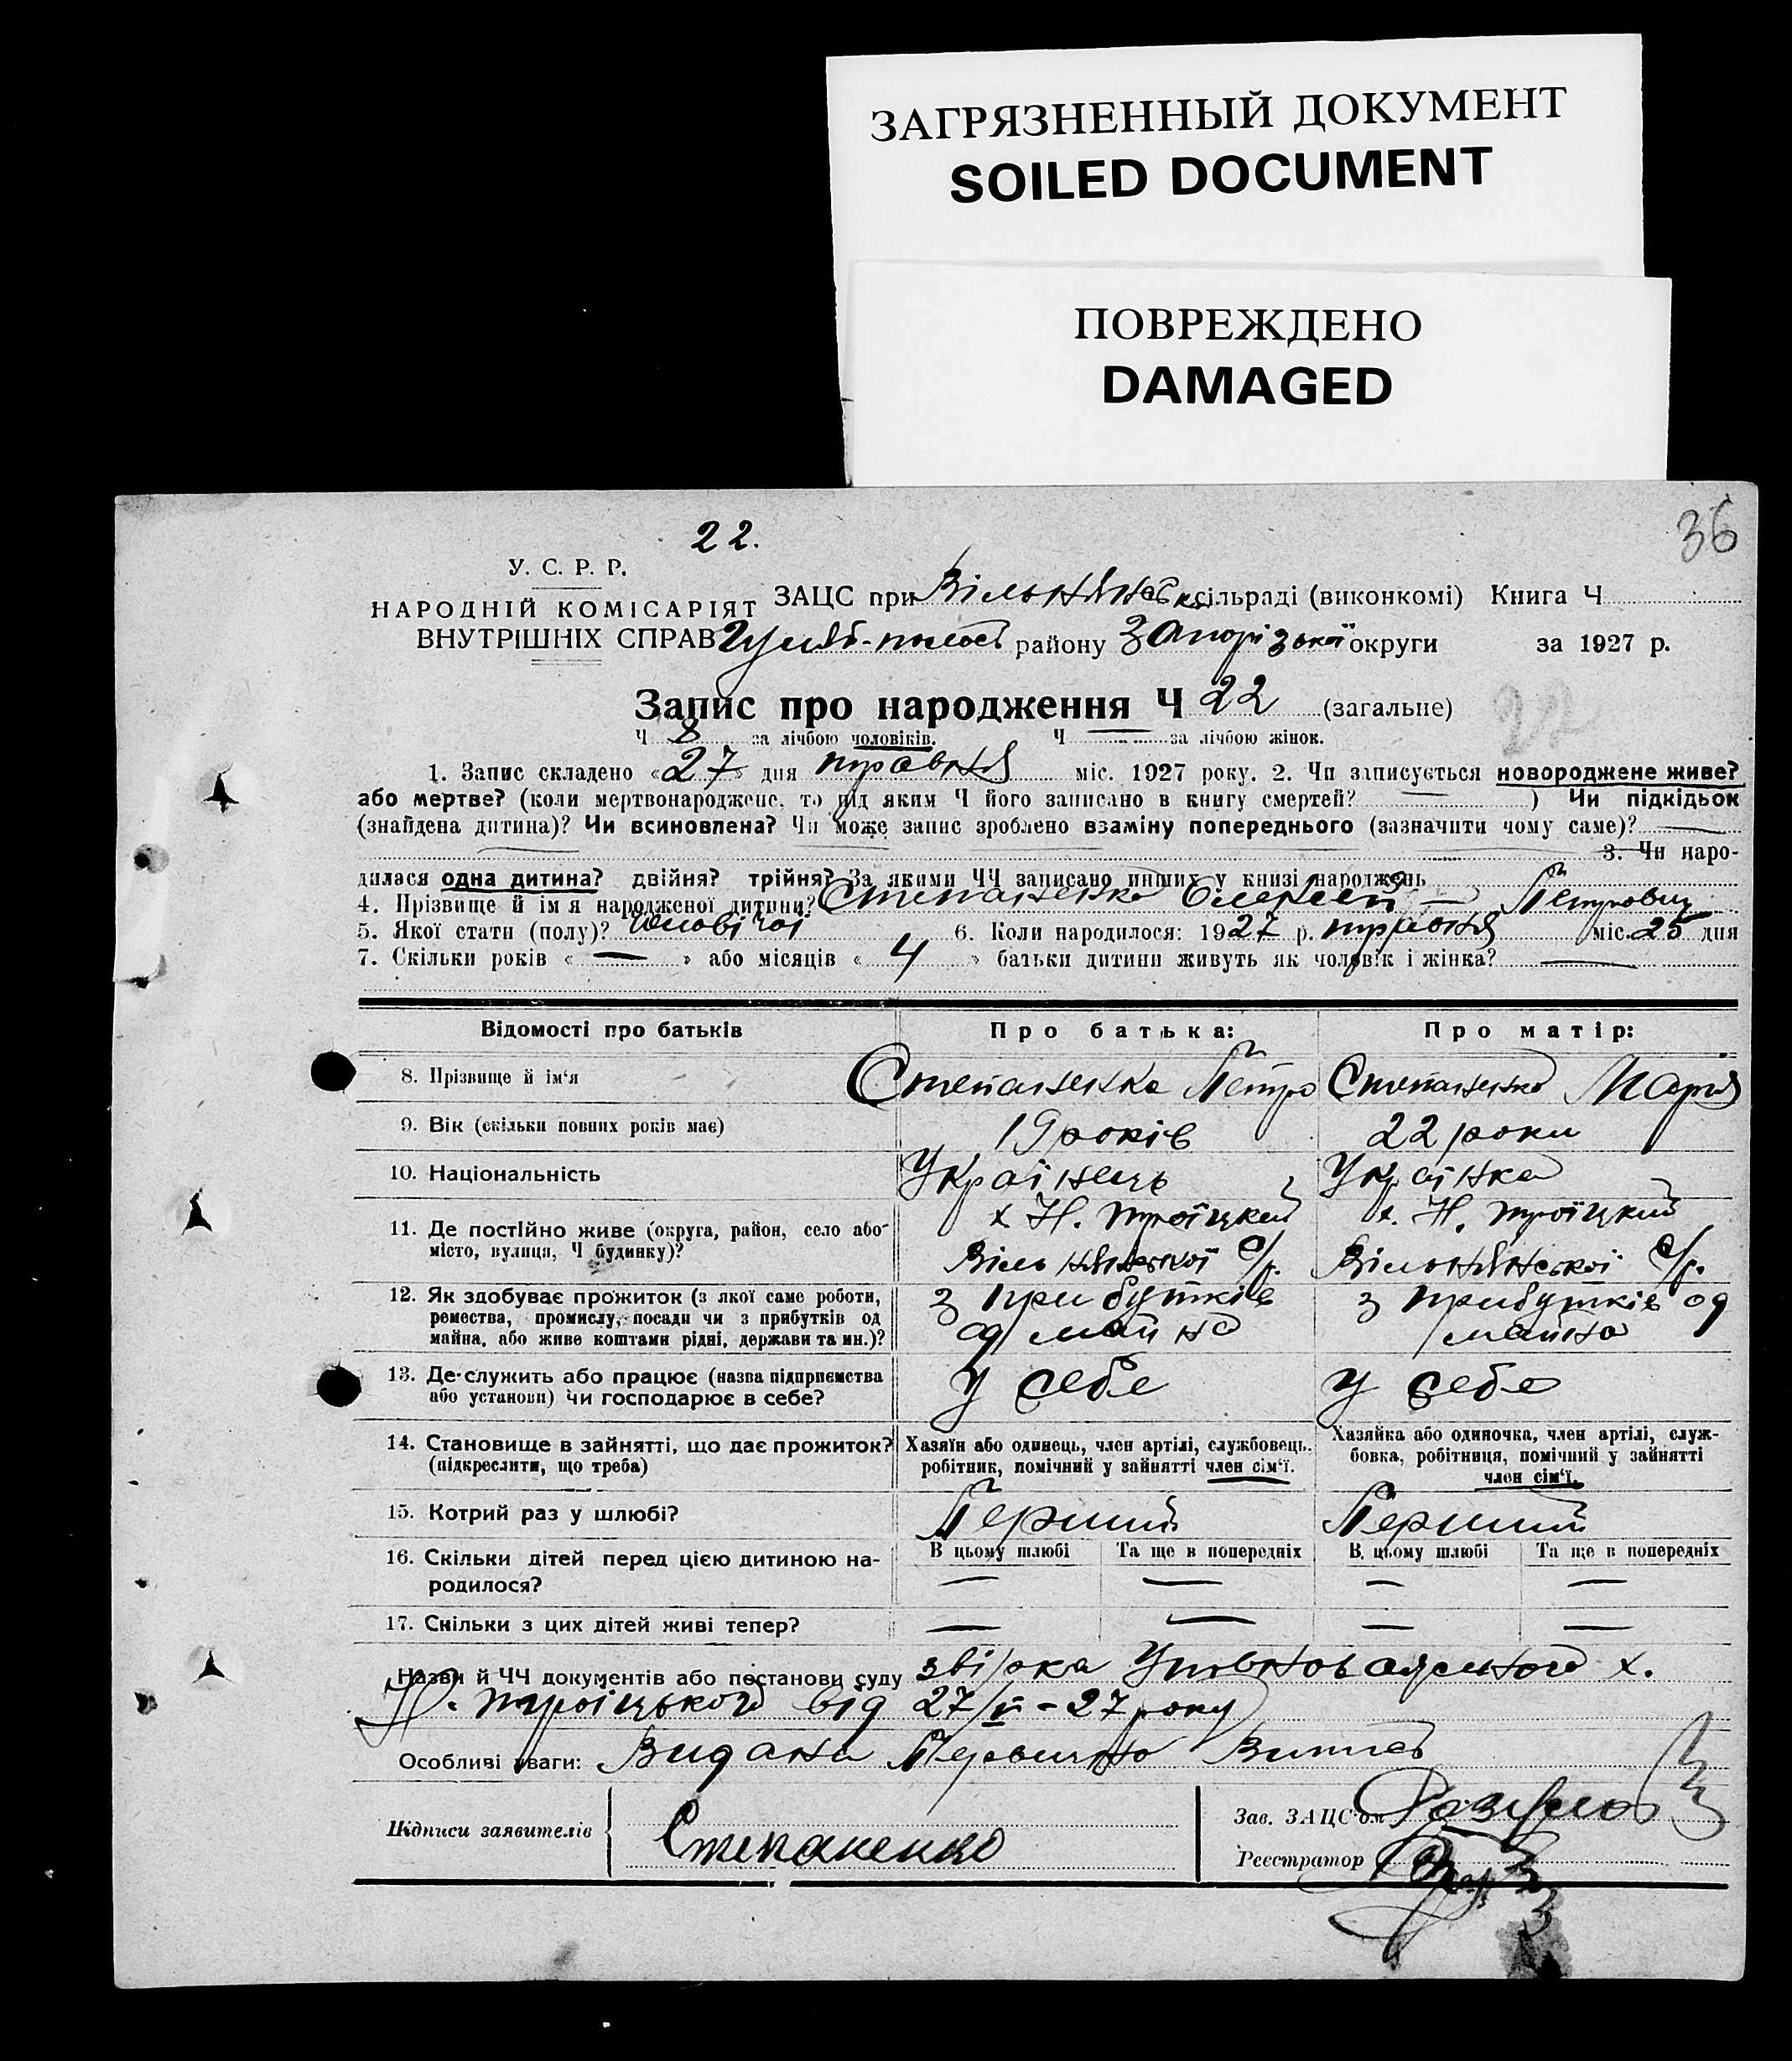 ЗАГРЯЗНЕННЫЙ ДОКУМЕНТ
SOILED DOCUMENT
ПОВРЕЖДЕНО
DAMAGED
36
22.
У. С. Р. Р.
НАРОДНІЙ КОМІСАРІЯТ ЗАЦС при Вільнянськ сільраді (виконкомі) Книга Ч
ВНУТРІШНІХ СПРАВ району Запорізької округи за 1927 р.
Запис про народження Ч 22 (загальне) 22
Ч 8 за лічбою чоловіків. Ч — за лічбою жінок.
1. Запис складено «27» дня травня міс. 1927 року. 2. Чи записується новороджене живе?
або мертве? (коли мертвонароджене, то під яким Ч його записано в книгу смертей? — ) Чи підкідьок
(знайдена дитина)? Чи всиновлена? Чи може запис зроблено взаміну попереднього (зазначити чому саме)? —
3. Чи наро-
дилася одна дитина? двійня? трійня? За якими ЧЧ записано инших у книзі народжень
4. Прізвище й ім'я народженої дитини? Степаненко Олексей — Петрович
5. Якої стати (полу)? чоловічої 6. Коли народилося: 1927 р. травня міс. 25 дня
7. Скільки років « — » або місяців « 4 » батьки дитини живуть як чоловік і жінка? —
Відомості про батьків Про батька: Про матір:
8. Прізвище й ім'я Степаненко Петро Степаненко Марія
9. Вік (скільки повних років має) 19 років 22 роки
10. Національність Українець Українка
11. Де постійно живе (округа, район, село або х. Н. Троїцкий х. Н. Троїцкий
місто, вулиця, Ч будинку)? Вільнянської с/р. Вільнянської с/р.
12. Як здобуває прожиток (з якої саме роботи, з прибутків з прибутків од
ремества, промислу, посади чи з прибутків од од майна майна
майна, або живе коштами рідні, держави та ин.)?
13. Де служить або працює (назва підприємства у себе у себе
або установи) чи господарює в себе?
14. Становище в зайнятті, що дає прожиток? Хазяїн або одинець, член артілі, службовець. Хазяйка або одиночка, член артілі, служ-
(підкреслити, що треба) робітник, помічний у зайнятті член сім'ї. бовка, робітниця, помічний у зайнятті
член сім'ї.
15. Котрий раз у шлюбі? Перший Перший
16. Скільки дітей перед цією дитиною на- В цьому шлюбі Та ще в попередніх В цьому шлюбі Та ще в попередніх
родилося? — — — —
17. Скільки з цих дітей живі тепер? — — — —
Назви й ЧЧ документів або постанови суду звірка Уповноваженого х.
Н. Троїцького від 27/V - 27 року
Особливі уваги: Видана Первична
Підписи заявителів Степаненко
Зав. ЗАЦС'ом
Реєстратор